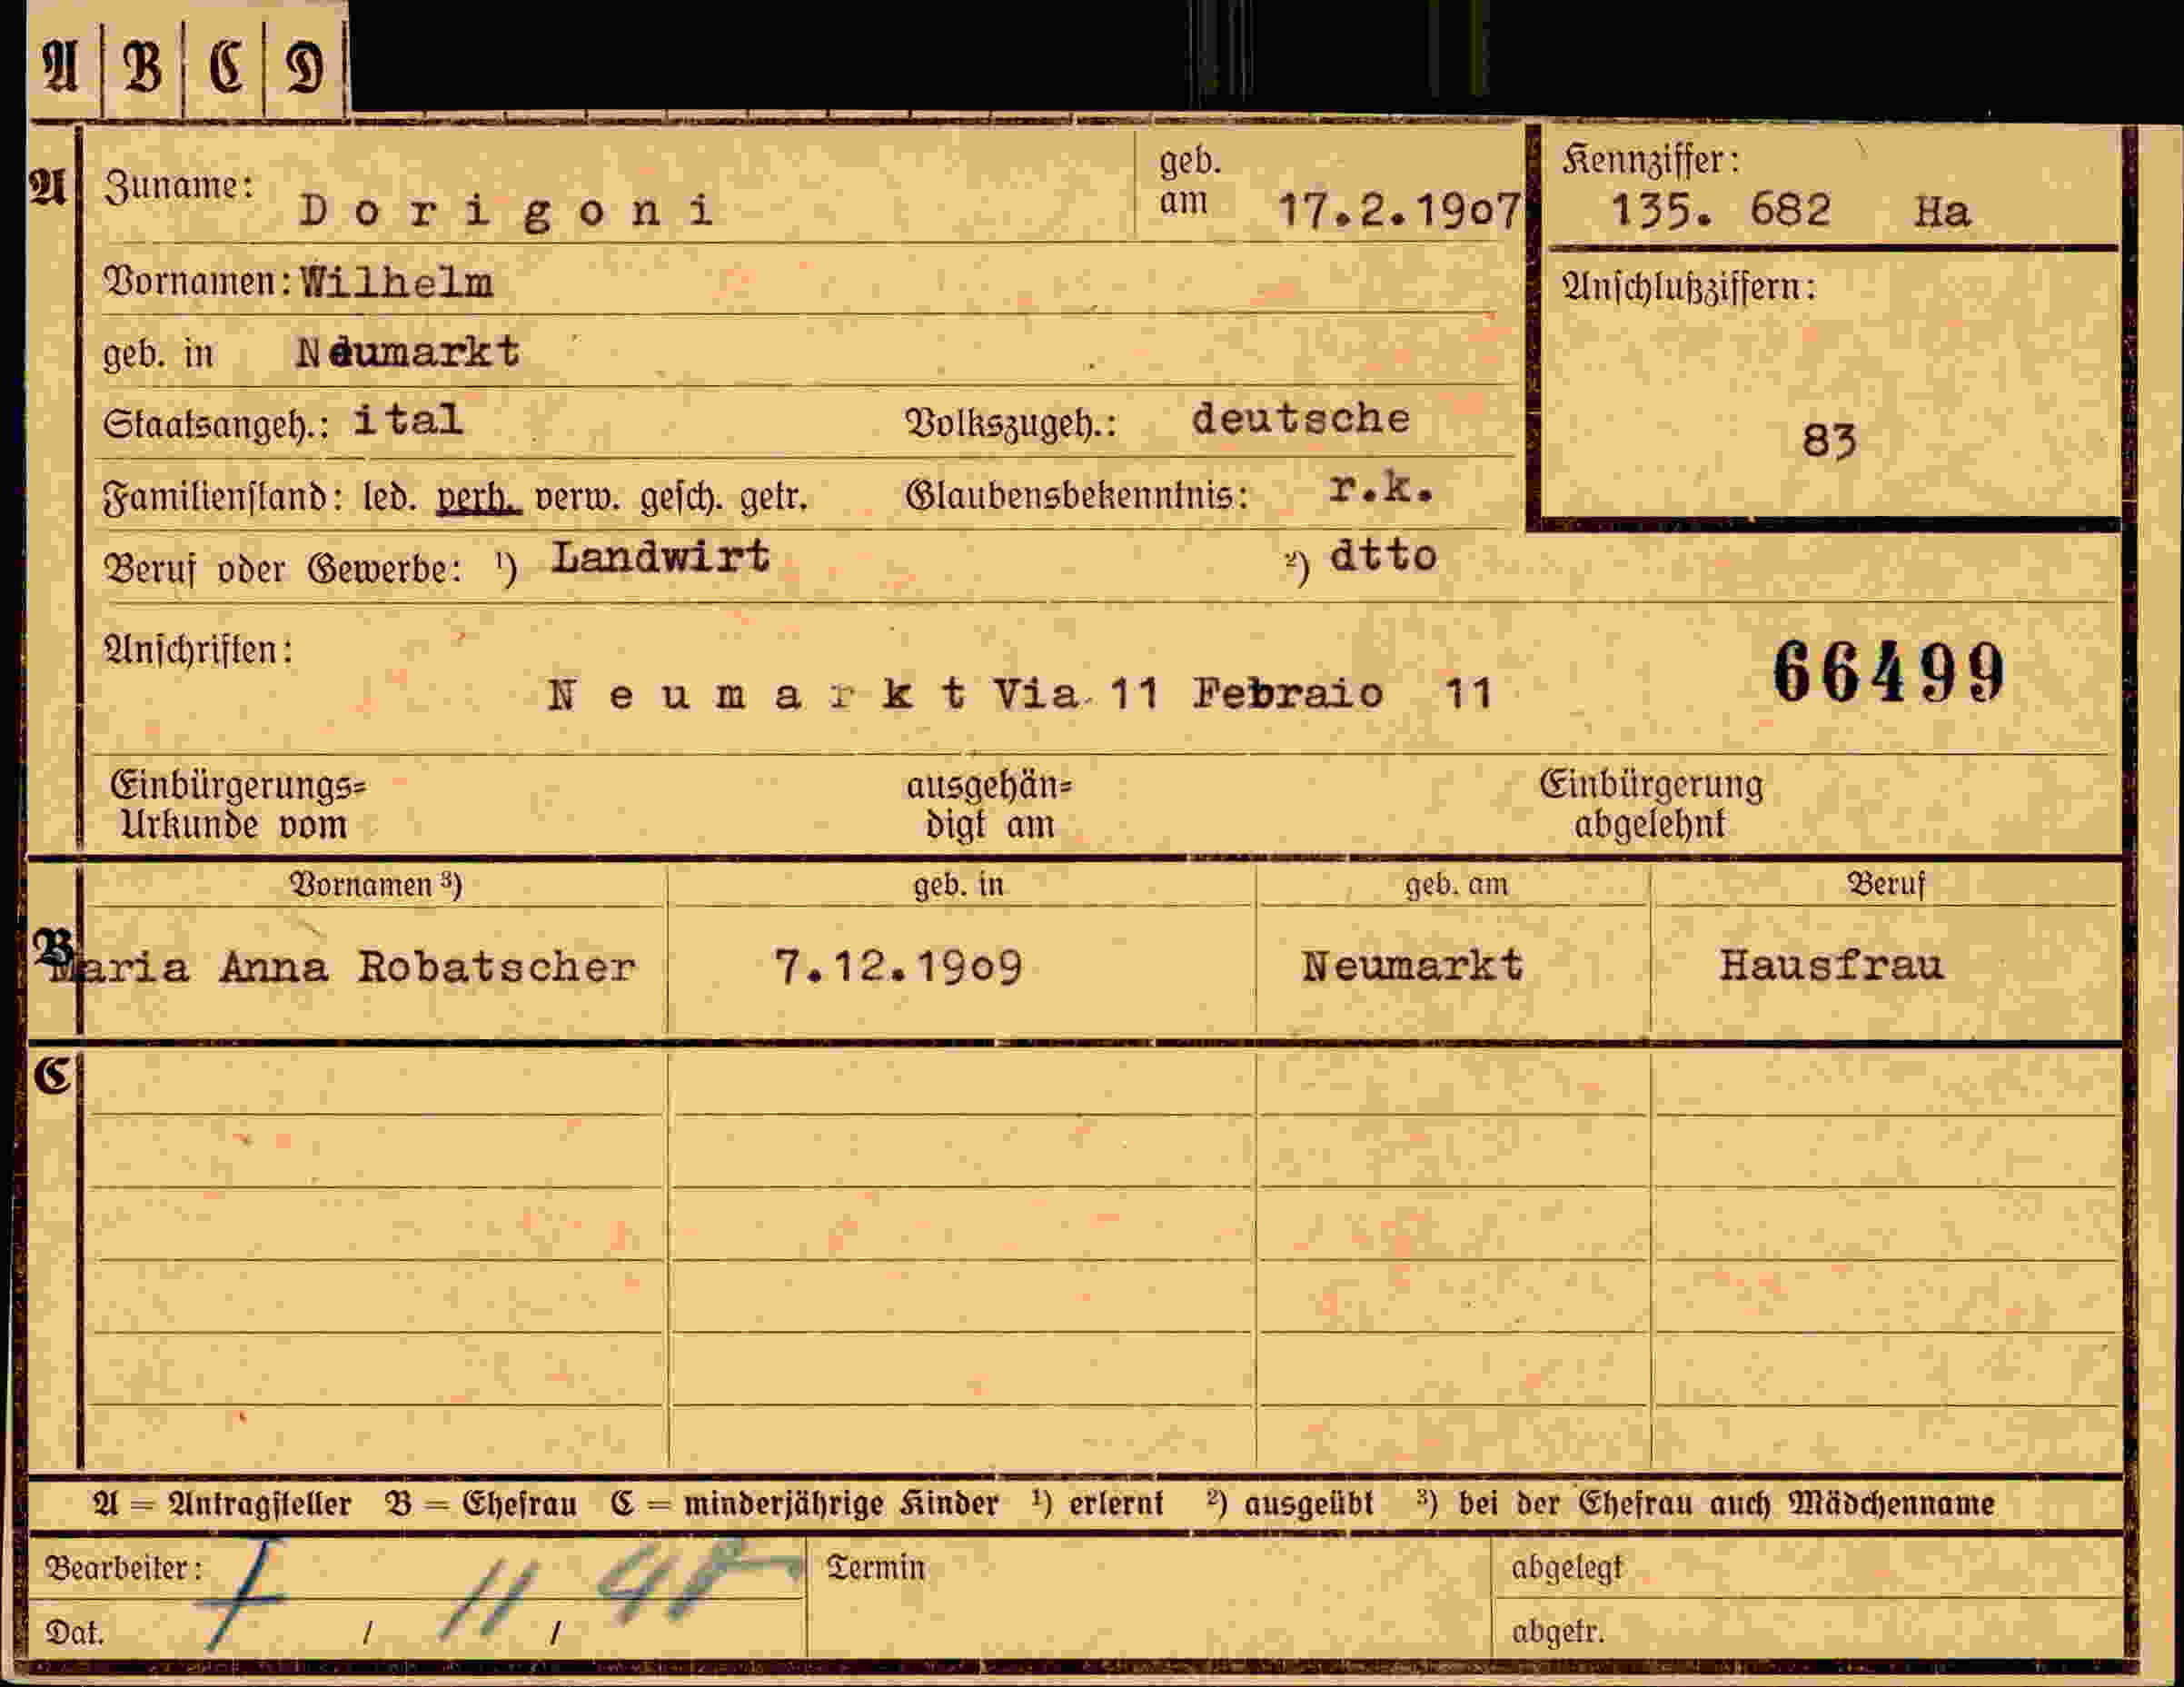 A B C D
A Zuname: Dorigoni geb. am 17.2.1907 Kennziffer: 135. 682 Ha
Vornamen: Wilhelm Anschlußziffern:
geb. in Neumarkt
Staatsangeh.: ital Volkszugeh.: deutsche 83
Familienstand: led. verh. verw. gesch. getr. Glaubensbekenntnis: r.k.
Beruf oder Gewerbe: ¹) Landwirt ²) dtto
Anschriften: 66499
Neumarkt Via 11 Febraio 11
Einbürgerungs= ausgehän= Einbürgerung
Urkunde vom digt am abgelehnt
Vornamen ³) geb. in geb. am Beruf
B Maria Anna Robatscher 7.12.1909 Neumarkt Hausfrau
C
A = Antragsteller B = Ehefrau C = minderjährige Kinder ¹) erlernt ²) ausgeübt ³) bei der Ehefrau auch Mädchenname
Bearbeiter: Termin abgelegt
Dat. 7 / 11 / abgetr.